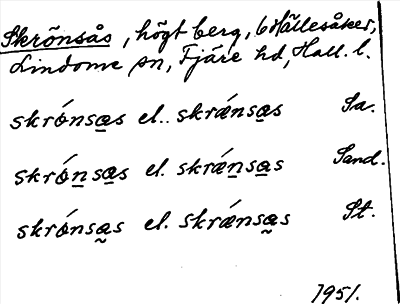 Skrönsås, högt berg, 6 Hällesåker,
Lindome sn, Fjäre hd, Hall. l.
skrǿnsas el. skrǽnsas Sa.
skrǿnsas el. skrǽnsas Sand.
skrǿnsas el. skrǽnsas St.
1951.